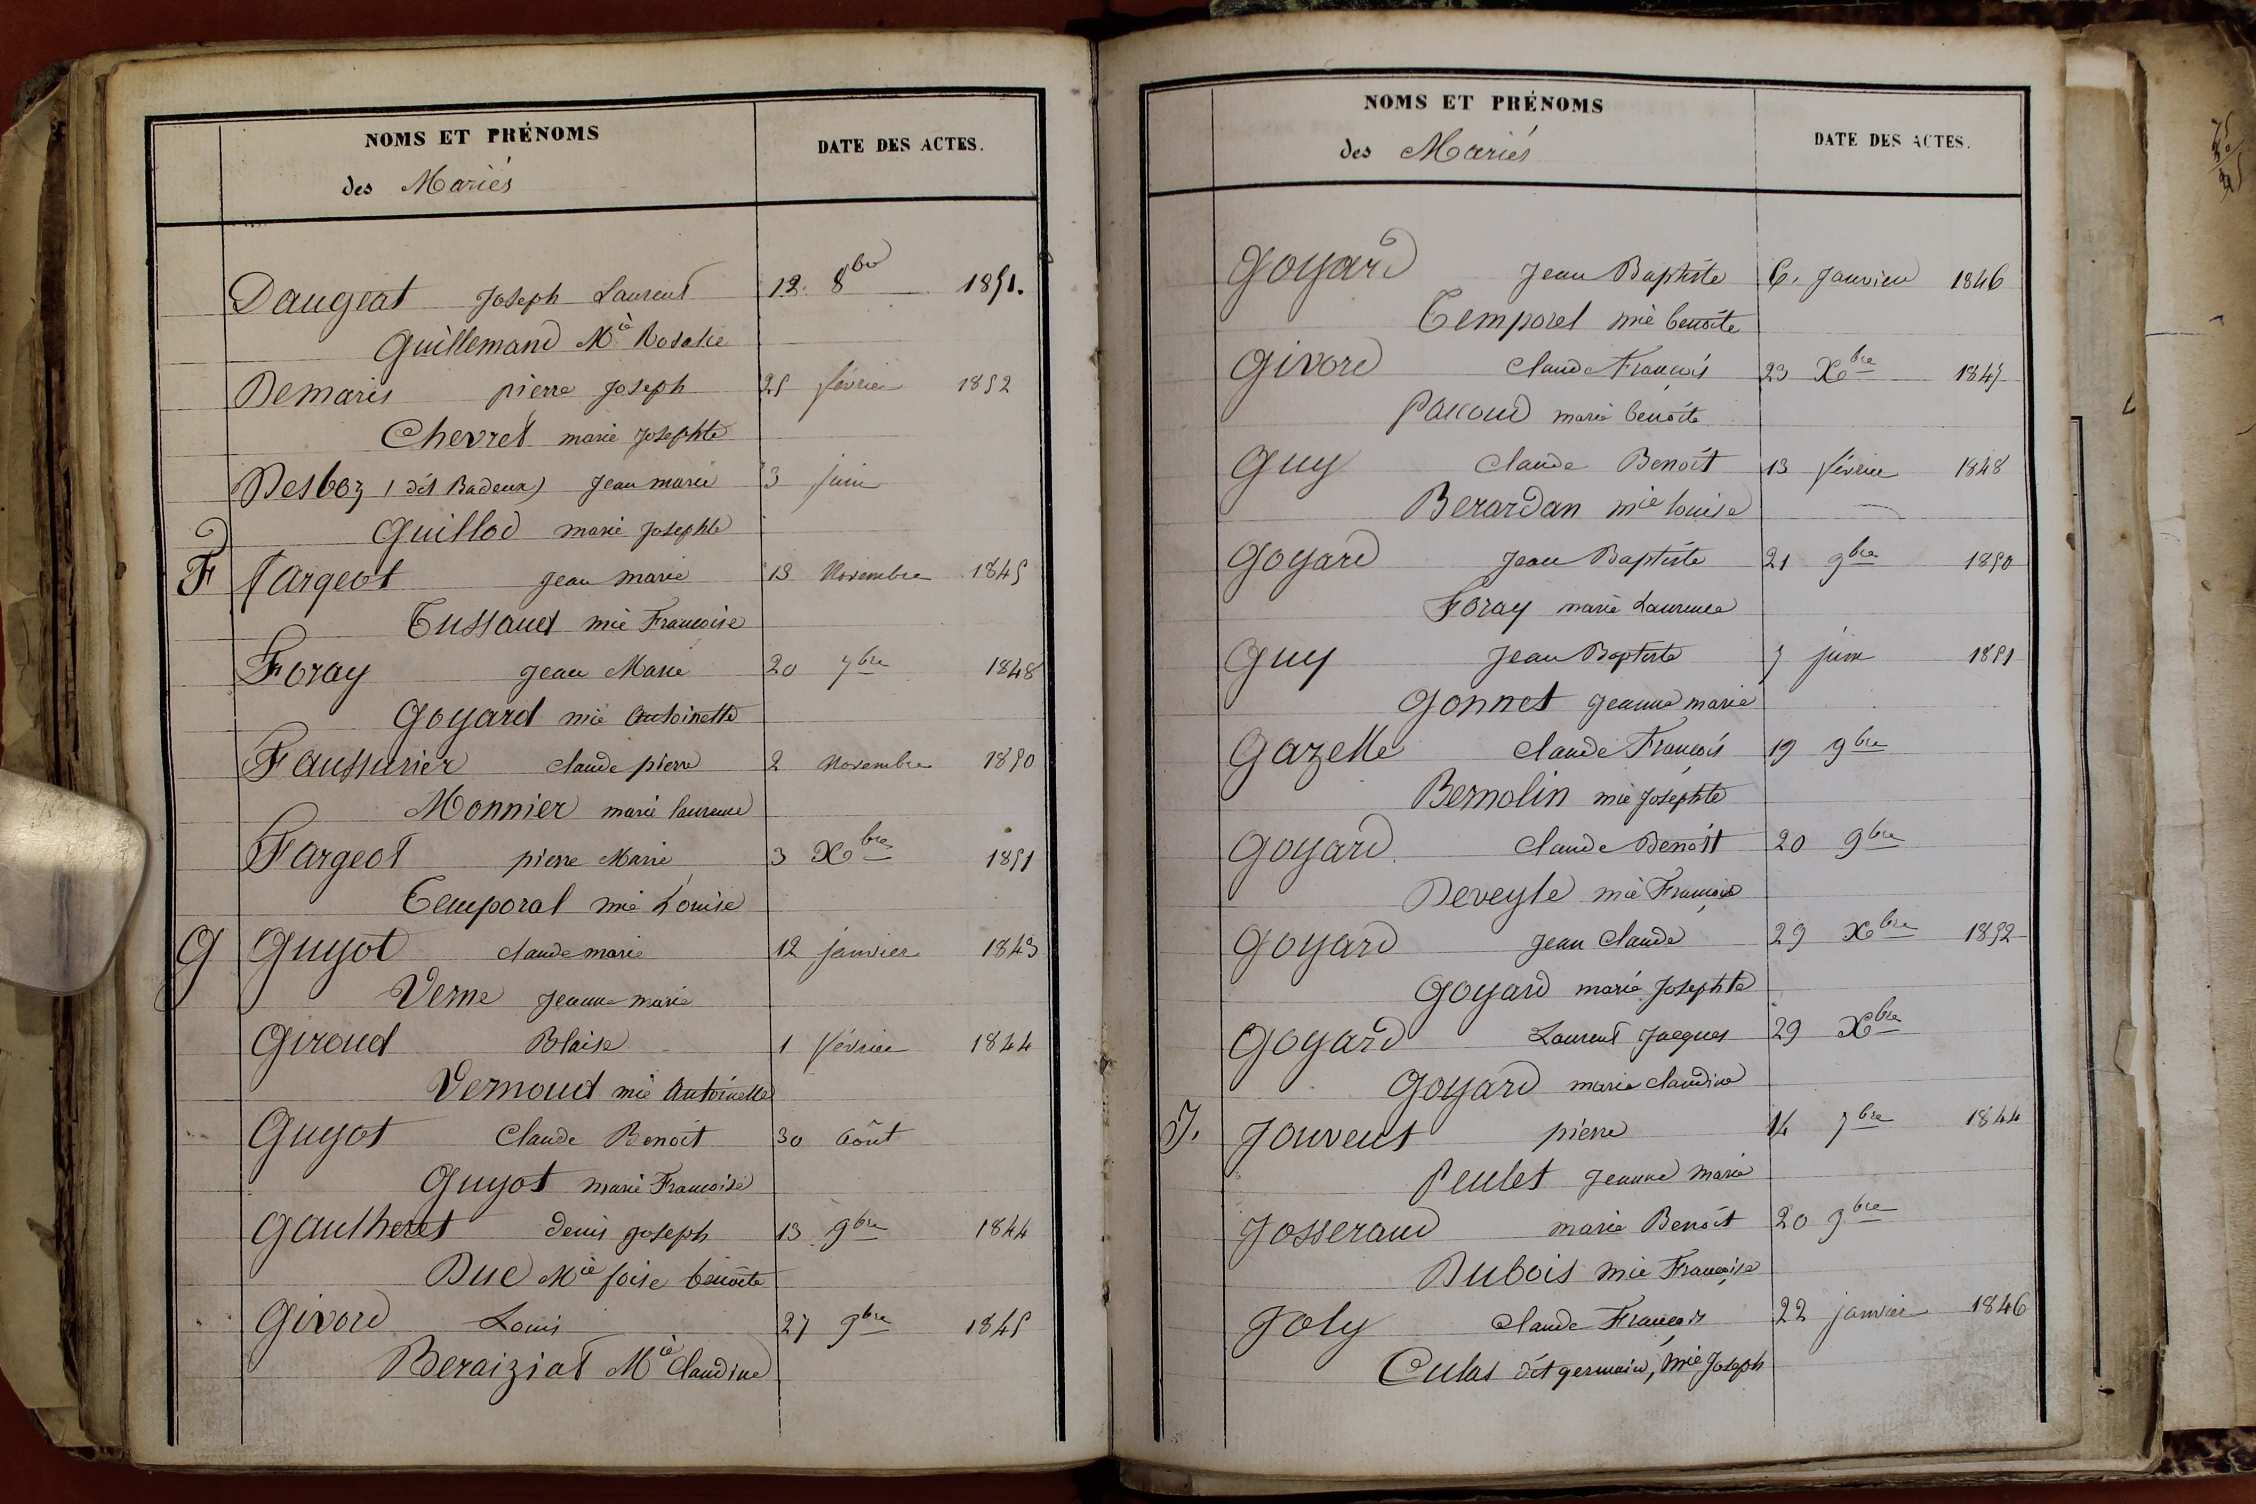 NOMS ET PRÉNOMS
DATE DES ACTES.
des Mariés
Daugeat Joseph Laurent 12. 8bre 1851.
Guillemand Mie Rosalie
Demaris pierre Joseph 25 février 1852
Chevret marie Josephte
Desboz (dit Badeux) Jean marie 3 juin
Guillod marie Josephte
F Fargeot Jean marie 13 Novembre 1845
Tussaud mie Francoise
Foray Jean Marie 20 7bre 1848
Goyard mie Antoinette
Faussurier claude pierre 2 Novembre 1850
Monnier marie laurence
Fargeot pierre Marie 3 Xbre 1851
Temporal mie Louise
G Guyot claude marie 12 janvier 1843
Verne Jeanne marie
Giroud Blaise 1 février 1844
Vernoud mie Antoinette
Guyot Claude Benoit 30 Août
Guyot marie Francoise
Gautheret denis Joseph 13 9bre 1844
Duc Mie foise benoite
Givord Louis 27 9bre 1845
Beraiziat Mie Claudine
NOMS ET PRÉNOMS
DATE DES ACTES.
des Mariés
Goyard Jean Baptiste 6. Janvier 1846
Temporel mie benoite
Givord Claude François 23 Xbre 1845
Pacoud marie benoite
Guy Claude Benoit 13 février 1848
Berardan mie louise
Goyard Jean Baptiste 21 9bre 1850
Foray marie Laurence
Guy Jean Baptiste 7 juin 1851
Gonnet Jeanne marie
Gazelle Claude François 19 9bre
Bernolin mie Josephte
Goyard Claude Benoit 20 9bre
Deveyle mie Françoise
Goyard Jean Claude 29 Xbre 1852
Goyard marie Josephte
Goyard Laurent Jacques 29 Xbre
Goyard marie claudine
J. Jouvent pierre 14 7bre 1844
Peulet Jeanne marie
Josserand marie Benoit 20 9bre
Dubois mie Françoise
Joly Claude François 22 janvier 1846
Culas dit germain, mie Joseph